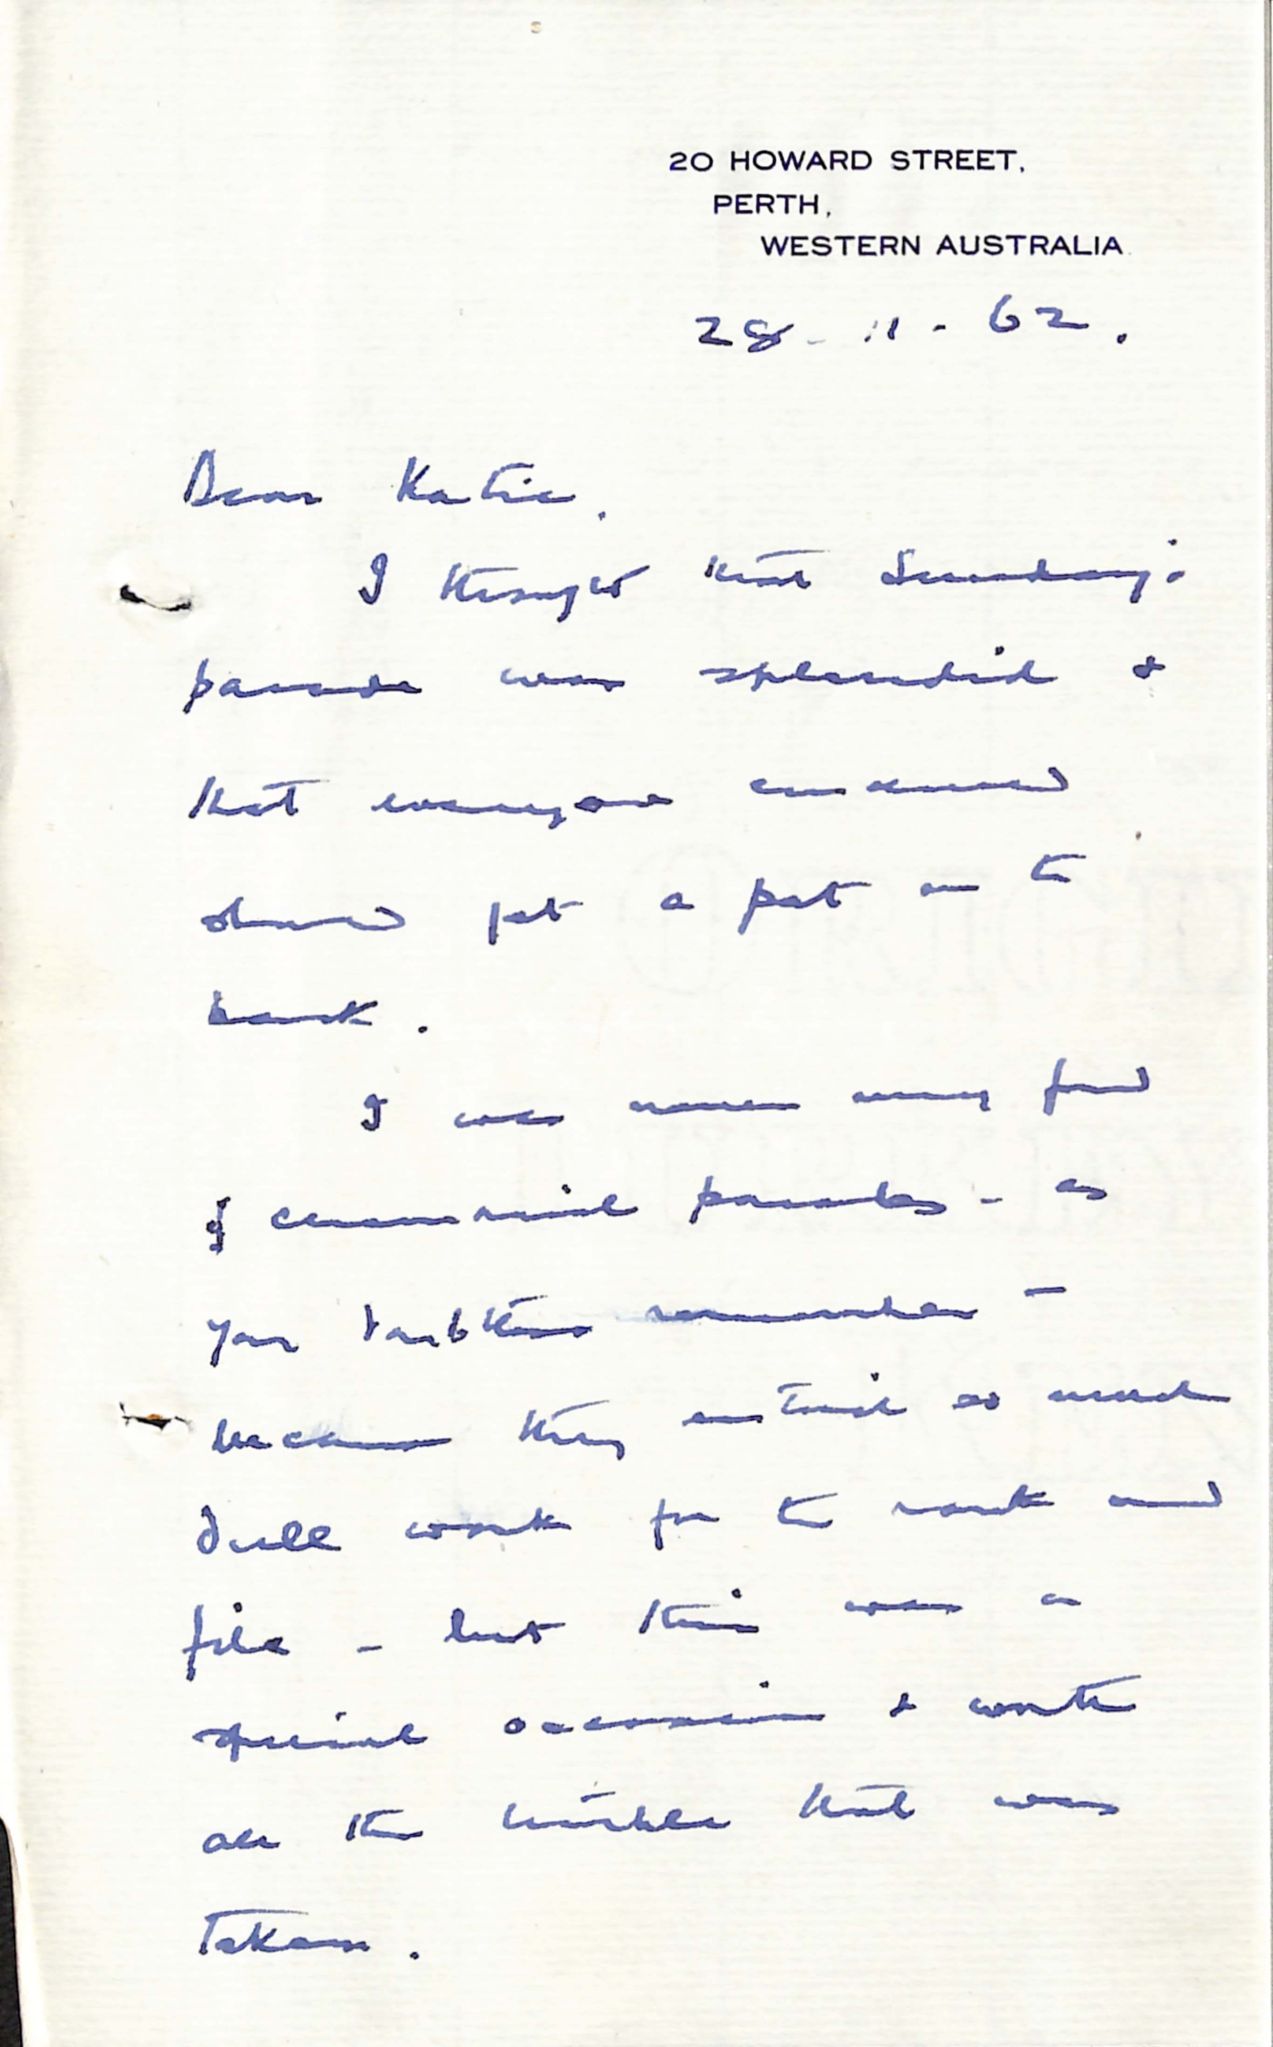 20 HOWARD STREET,
PERTH,
WESTERN AUSTRALIA
28 - 11 - 62.
Dear Katie,
I thought that Sunday's
parade was splendid &
that everyone concerned
should get a pat on the
back.
I was never very fond
of ceremonial parades - as
you doubtless remember -
because they entail so much
dull work for the rank and
file - but this was a
special occasion & worth
all the trouble that was
taken.